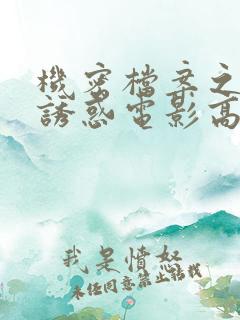 機密檔案之
誘惑電影高
我是憤怒
未经同意禁止转载